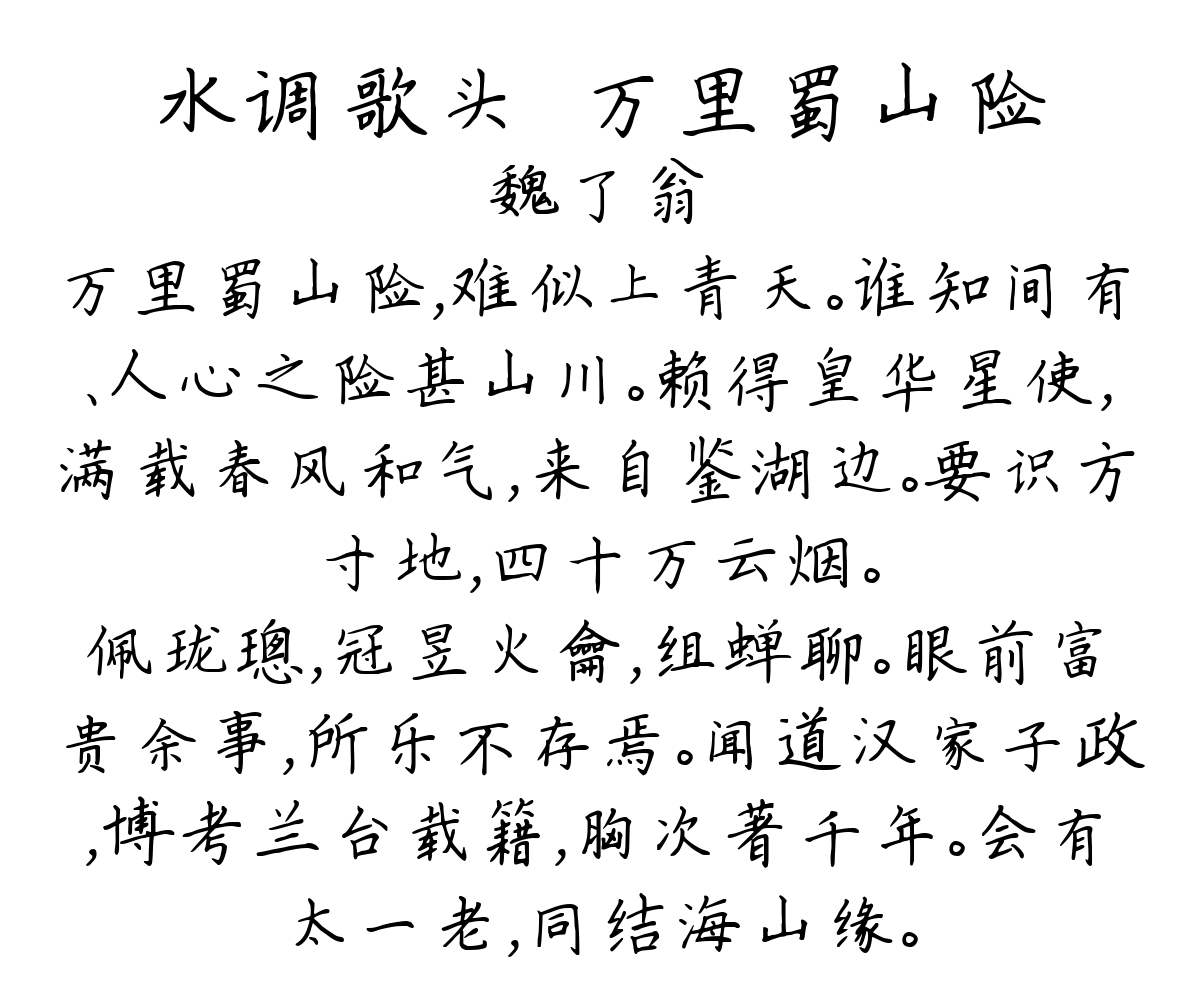 水调歌头 万里蜀山险
魏了翁
万里蜀山险,难似上青天。谁知间有
、人心之险甚山川。赖得皇华星使,
满载春风和气,来自鉴湖边。要识方
寸地,四十万云烟。
佩珑璁,冠昱火龠,组蝉聊。眼前富
贵余事,所乐不存焉。闻道汉家子政
,博考兰台载籍,胸次著千年。会有
太一老,同结海山缘。